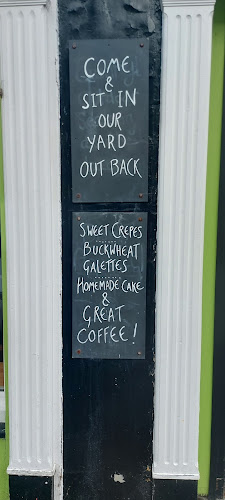 COME
&
SIT IN
OUR
YARD
OUT BACK
SWEET CREPES
BUCKWHEAT
GALETTES
HOMEMADE CAKE
&
GREAT
COFFEE!